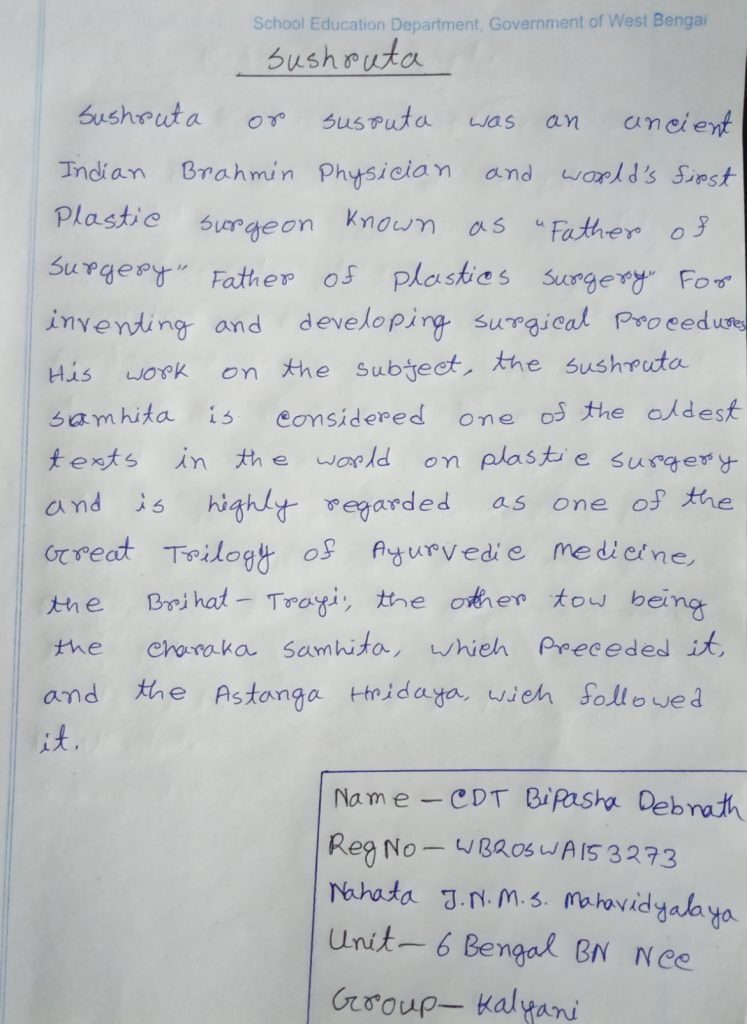 School Education Department, Government of West Bengal
Sushruta
Sushruta or susruta was an ancient
Indian Brahmin Physician and world's first
Plastic surgeon Known as "Father of
Surgery" Father of plastics surgery" For
inventing and developing surgical Procedures
His work on the subject, the sushruta
samhita is considered one of the oldest
texts in the world on plastic surgery
and is highly regarded as one of the
Great Trilogy of Ayurvedic medicine,
the Brihat - Trayi, the other tow being
the charaka samhita, which Preceded it,
and the Astanga Hridaya, wich followed
it.
Name - CDT Bipasha Debnath
Reg No - WB20SWA153273
Nahata J.N.M.S. Mahavidyalaya
Unit - 6 Bengal BN NCC
Group - Kalyani